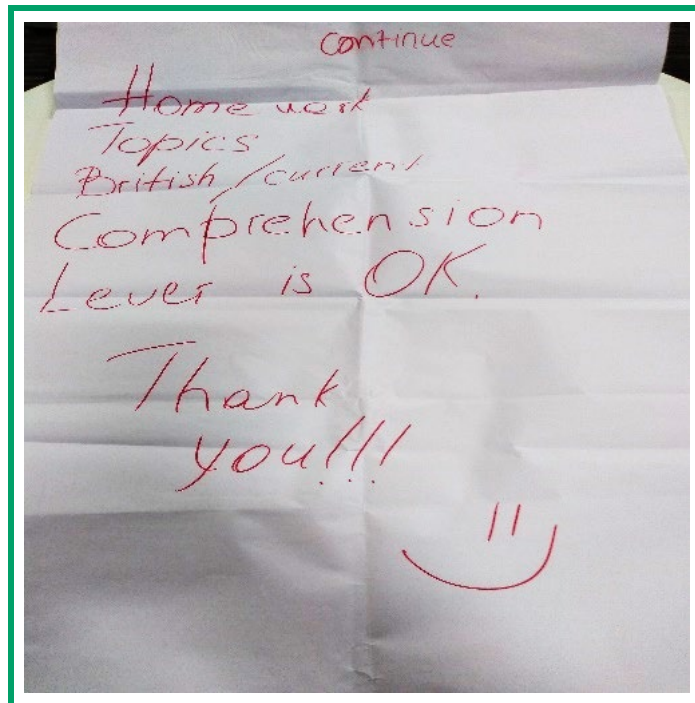 Continue
Home work
Topics
British/current
Comprehension
Lever is OK.
Thank
you!!!